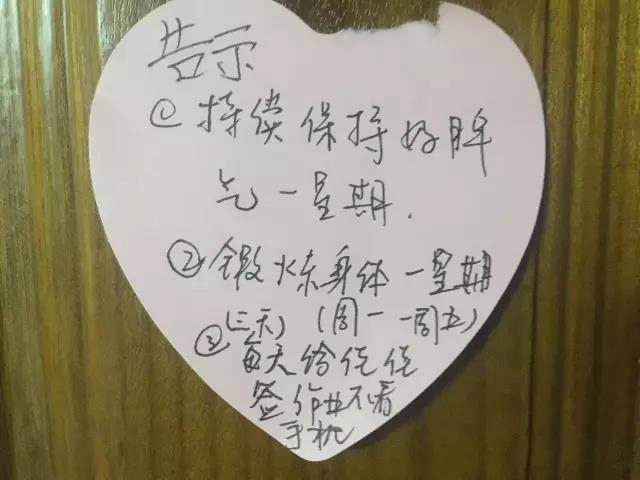 告示
① 持续保持好脾
气一星期.
② 锻炼身体一星期
(三天) (周一-周五)
③ 每天给侄侄
签作业不看
手机